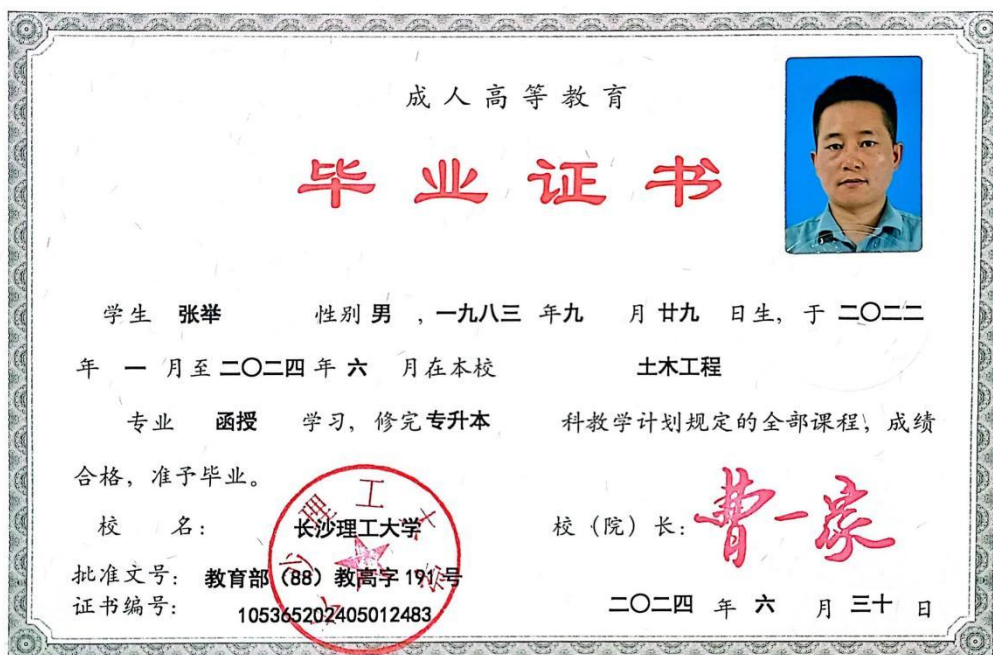 成人高等教育
毕业证书
学生 张举 性别 男 ，一九八三 年九 月 廿九 日生，于 二〇二二
年 一 月至 二〇二四 年 六 月在本校 土木工程
专业 函授 学习，修完 专升本 科教学计划规定的全部课程，成绩
合格，准予毕业。
校 名： 长沙理工大学 校（院）长： 曹一家
批准文号： 教育部（88）教高字 191 号
证书编号： 105365202405012483 二〇二四 年 六 月 三十 日